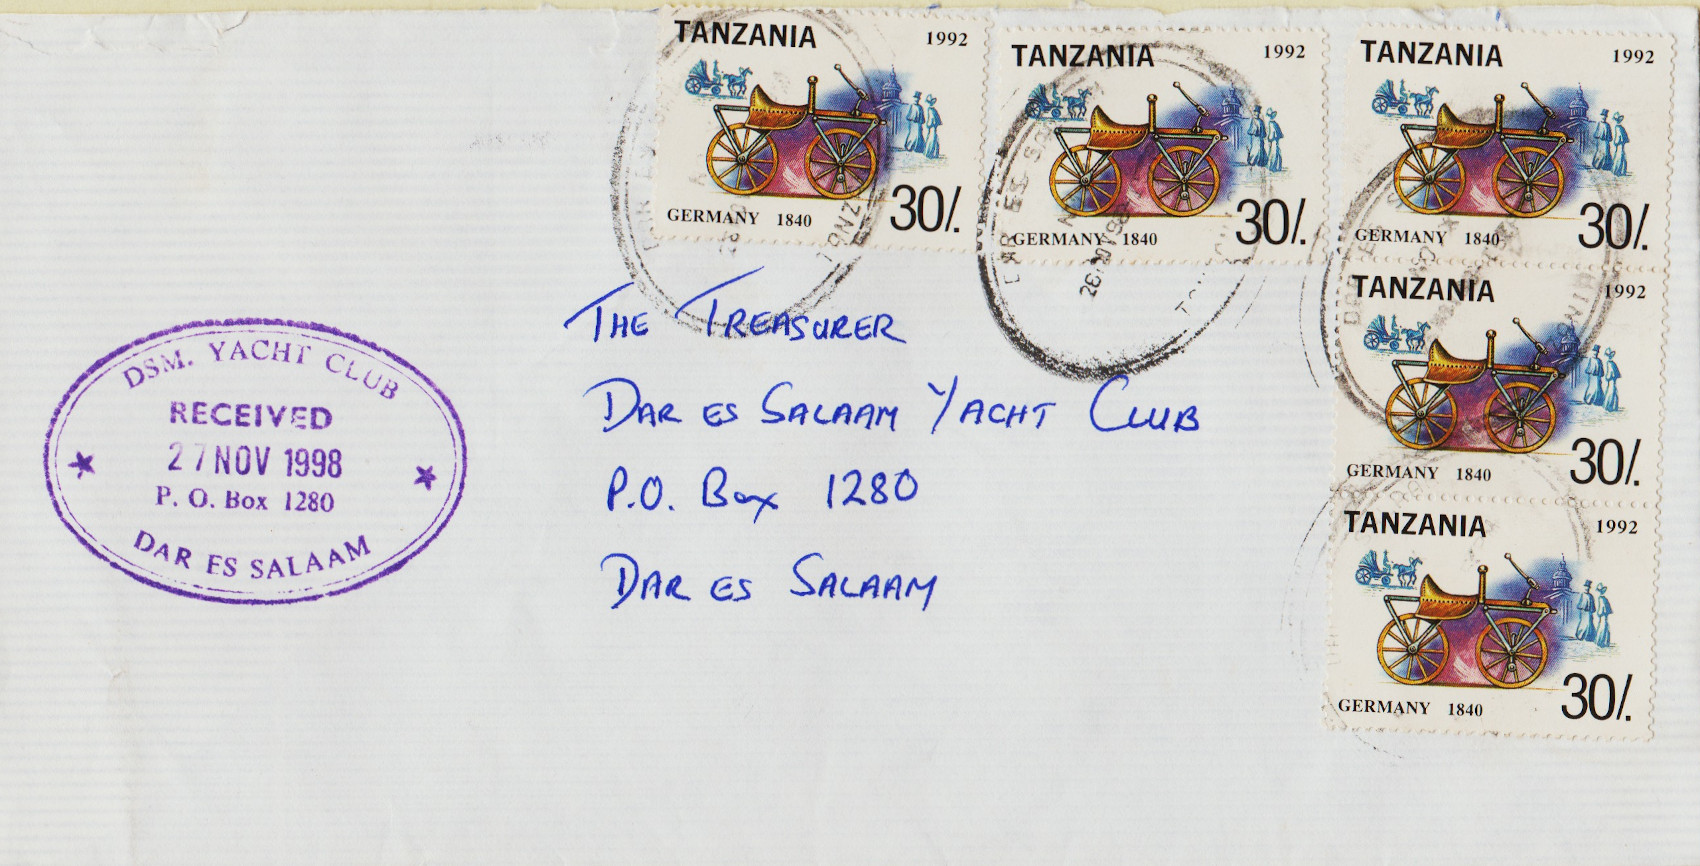 TANZANIA 1992
GERMANY 1840 30/.
TANZANIA 1992
GERMANY 1840 30/.
TANZANIA 1992
GERMANY 1840 30/.
TANZANIA 1992
GERMANY 1840 30/.
TANZANIA 1992
GERMANY 1840 30/.
DAR ES SALAAM
THE TREASURER
DAR ES SALAAM YACHT CLUB
P.O. Box 1280
DAR ES SALAAM
DSM. YACHT CLUB
RECEIVED
27 NOV 1998
P. O. Box 1280
DAR ES SALAAM